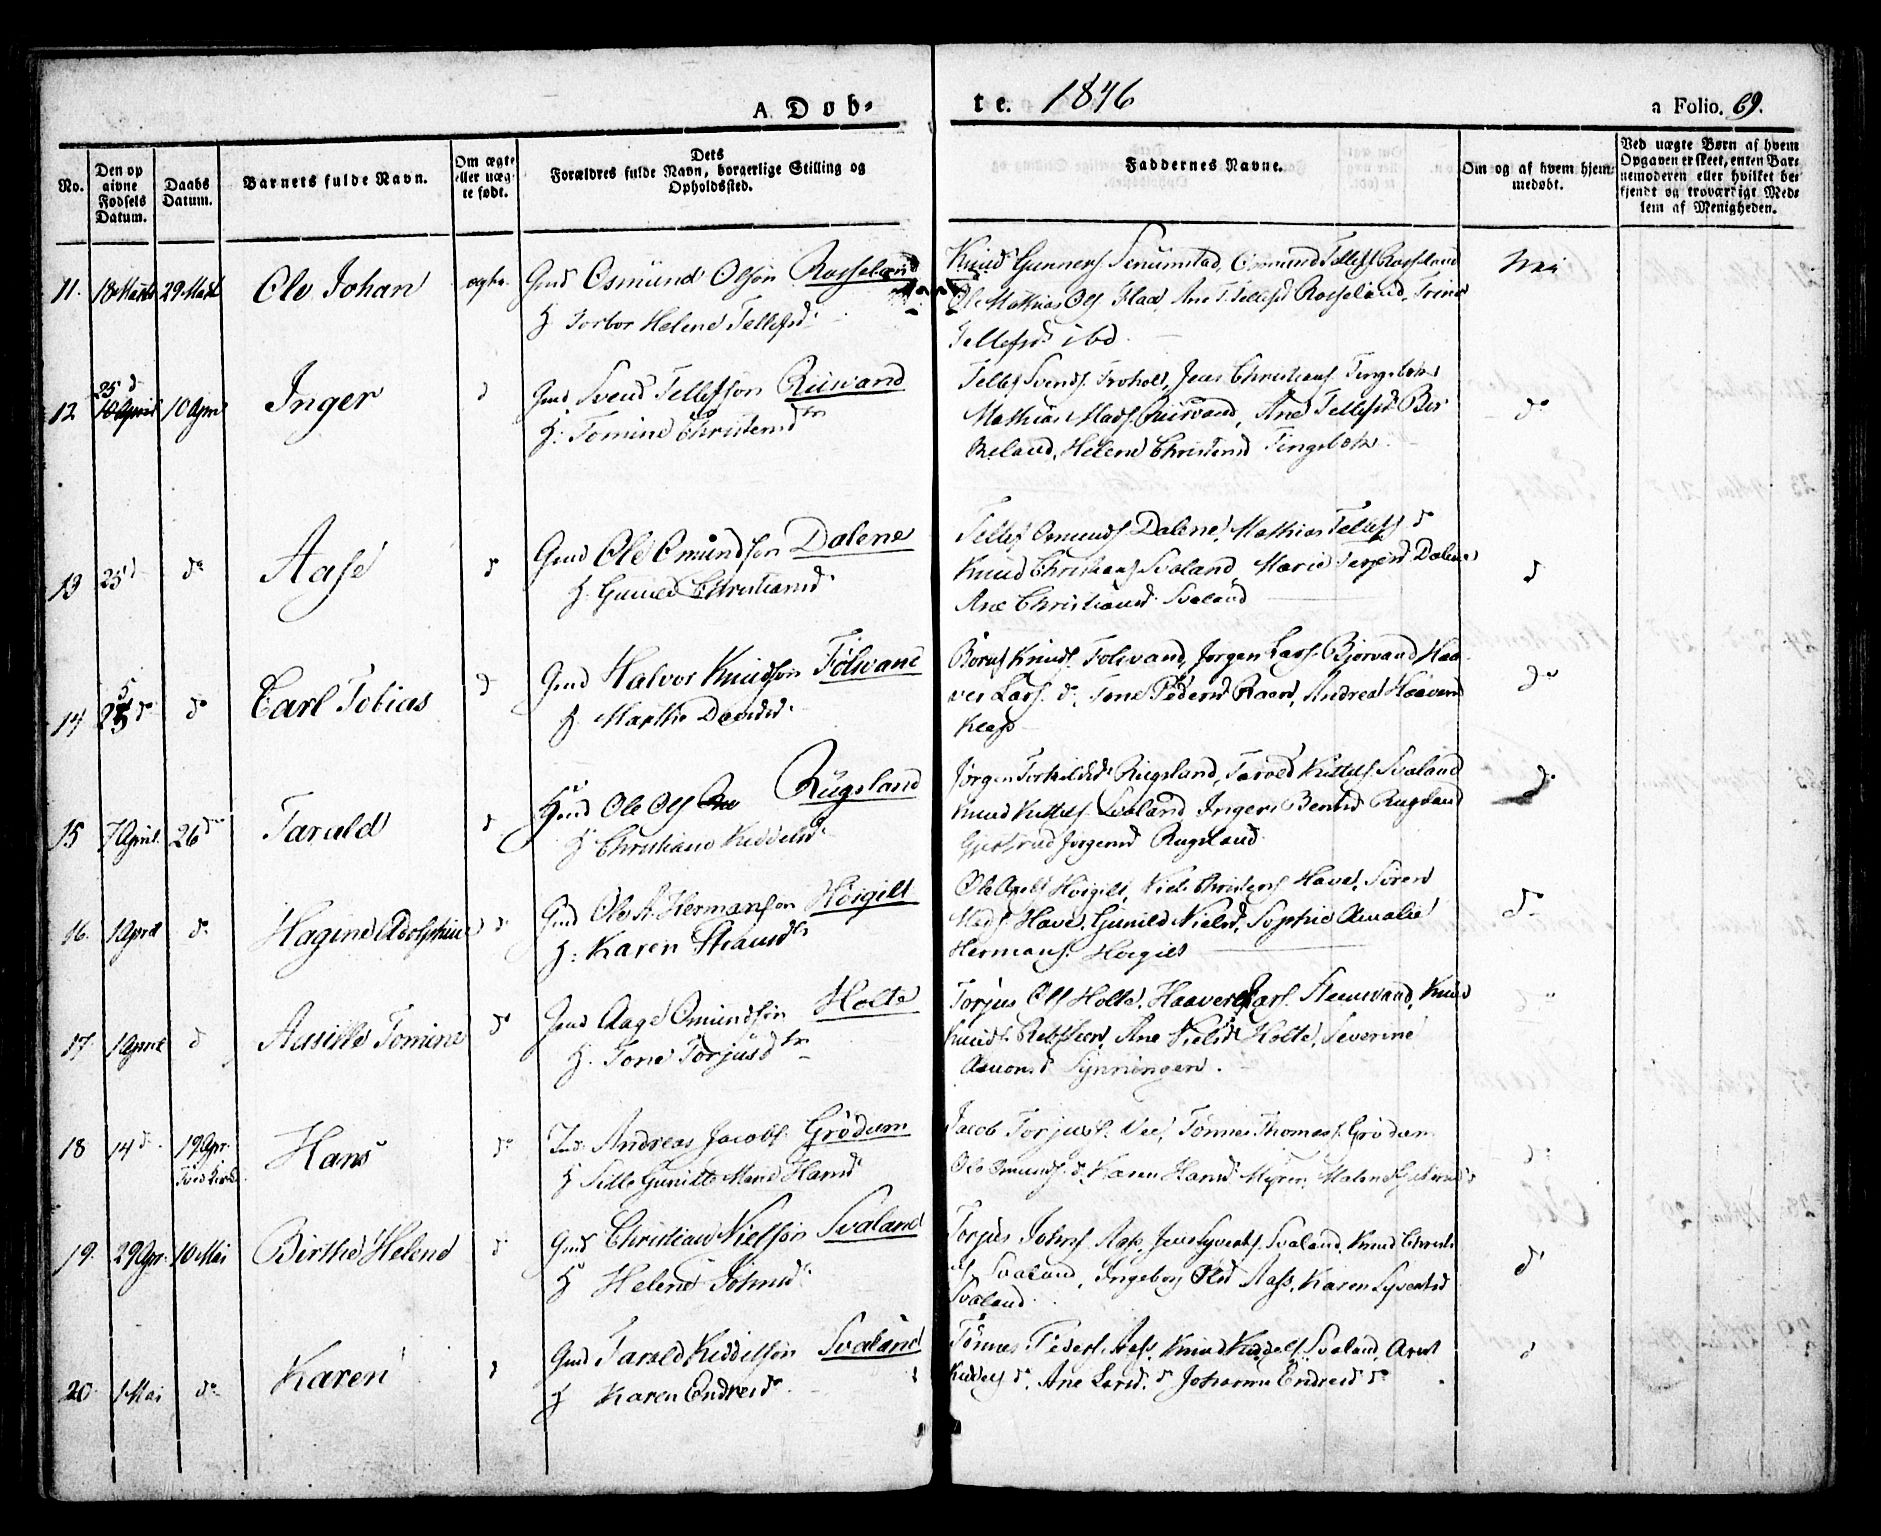 A. Døb-
te. 1846
a Folio. 69.
No.
Den op
givne
Fødsels
Datum.
Daabs
Datum.
Barnets fulde Navn.
Om ægte
eller uæg-
te født.
Dets
Forældres fulde Navn, borgerlige Stilling og
Opholdssted.
Faddernes Navne.
Om og af hvem hjem-
medøbt.
Ved uægte Børn af hvem
Opgaven er skeet, enten Bar-
nemoderen eller hvilket be-
kjendt og troværdigt Med-
lem af Menigheden.
11. 18 Marts 29 Marts Ole Johan ægte. Gmd Osmund Olsøn Rosseland
H Torbor Helene Tellefsd
Knud Gunners. Senumstad, Osmund Tellefs Rosseland
Ole Mathias Ols Flaa, Ane T. Tellefsd Rosseland, Trine
Tellefsd ibd.
Nei
12 25 d 10 April Inger d Gmd Svend Tellefsøn Riisvand
H: Tomine Christensd
Tellef Svends. Troholt, Jens Christians. Tingsbek
Mathias Mads. Riisvand, Ane Tellefsd Bir
keland, Helene Christensd Tingsbek.
do
13 25 d do Aase d Gmd Ole Omundsøn Dalene
H. Gunild Christiansd
Tellef Omunds Dalene, Mathias Tellefs d
Knud Christians Svaland, Marie Terjesd Dalene
Ane Christiansd Svaland
d
14 25 do do Carl Tobias d Gmd Halvor Knudsøn Følsvand
H Marthe Davidsd
Børu Knuds. Følsvand, Jørgen Lars. Bjorvand Haa
ver Lars. do. Tone Pedersd Raaen, Andrea Haaversd
Kleps
do
15 7 April. 26 do Tarald d Gmd Ole Ols Rugsland
H Christiane Kiddelsd
Jørgen Torkildsd Rugsland, Tarald Kittels. Svaland
Knud Kittels Svaland Inger Bentsd Rugsland
Gjertrud Jørgensd Rugsland
do
16. 1 April do Hagine Adolphine d Gmd Ole A. Hermansøn Høigilt
H: Karen
Ole Høigilt, Niels Christens Have, Søren
Mads. Have, Gunild Nielsd, Sophie Amalie
Hermans. Høigilt
do
17. 1 April d Aasille Tomine do Gmd Aage Omundsøn Holte
H. Tone Torjusd
Torjus Ols Holte, Haaver Lars. Knud
Knuds. Ane Nielsd Holte, Severine
Synningen.
18 14 d 19 Apr. Hans do Ind: Andreas Jacobs. Grødum
H Sille Gunilde Marie Hansd
Jacob Torjus. Vee, Tønnes Thomas. Grødum
Ole Omunds. d. Karen Hansd Myren, Malene
d.
19. 29 Apr. 10 Mai Birthe Helene d Gmd Christian Nielsøn Svaland
H Helene Johnsd
Torjus Johns. Aas, Jens Syverts. Svaland, Knud Christi
Svaland, Ingeborg Olsd Aas, Karen Syvertsd
Svaland
d
20 1 Mai do Karen d Gmd Tarald Kiddelsøn Svaland
H Karen Endresd
Tønnes Peders. Aas, Knud Kiddels. Svaland, Arent
Kiddels d. Ane Larsd. d Johanne Endresd do
d